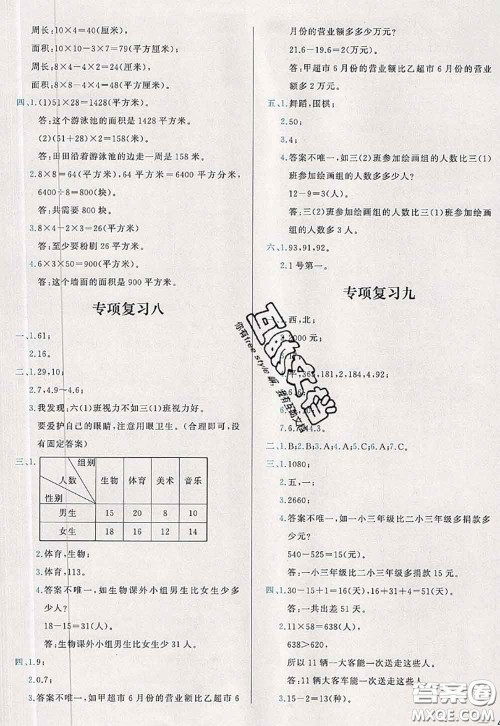 周长:10×4=40(厘米)。
面积:10×10-3×7=79(平方厘米)
周长:8×4=32(厘米)。
面积:8×8-4×4-2×2=44(平方厘米)
四、1.(1)51×28=1428(平方米)。
答:这个游泳池的面积是 1428 平方米。
(2)(51+28)×2=158(米)。
答:田田沿着游泳池的边走一周是 158 米。
2.8×8=64(平方分米),64平方米=6400 平方分米,
6400÷8=800(块)。
答:共需要 800 块。
3.8×4-5=27(平方米)。
答:至少要粉刷 27 平方米。
4.6×3×50=900(平方厘米)
答:这个墙面的面积是 900 平方厘米。
专项复习八
一、1.61;
2.16。
二、1.29,10;
2.7,4.9-4.6;
3.我发现:六(1)班视力不如三(1)班视力好。
要爱护自己的眼睛,注意用眼卫生。(合理即可,没
有固定答案)
三、1.
组别
人数
性别
生物 体育 美术 音乐
男生 15 20 8 10
女生 18 16 12 14
2.体育,生物;
3.体育,113。
4.答案不唯一,如生物课外小组男生比女生少多
少人?
18-15=31(人)。
答:生物课外小组男生比女生少 31 人。
四、1.9;
2.0.7;
3.答案不唯一,如甲超市 6 月份的营业额比乙超市 6
月份的营业额多多少万元?
21.6-19.6=2(万元)。
答:甲超市 6 月份的营业额比乙超市 6 月份的营业
额多2万元。
五、1.舞蹈,围棋;
2.50;
3.4;
4.答案不唯一,如三(2)班参加绘画组的人数比三(1)
班参加绘画组的人数多多少人?
12-9=3(人)。
答:三(2)班参加绘画组的人数比三(1)班参加绘画
组的人数多 3 人。
六、1.93,91,92。
2.1 号第一。
专项复习九
一、1.西,北;
000元;
368,181,2,184,4,92;
二、1.B;2.B;3.A;4.B;5.A;6.C;7.C。
三、1.1080;
2.五,一;
3.2660;
4.答案不唯一,如一小三年级比二小三年级多捐款多
少元?
540-525=15(元)。
答:一小三年级比二小三年级多捐款 15 元。
四、1.30-15+1=16(天),16+31+4=51(天)
答:一共出差 51 天。
2.11×58=638(人),
638>620,
所以 11 辆大客能一次送走这些人。
答:11 辆大客能一次送走这些人。
3.15-2=13(种)。
互助文档
你有free style嘛,我有互助文档
答案圈
MXQE.COM